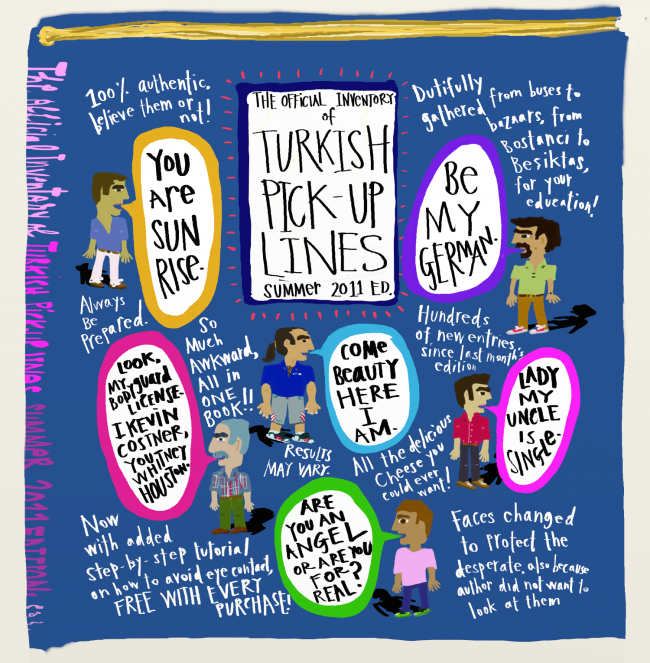 The official Inventory of TURKISH PICK-UP LINES SUMMER 2011 EDITION.
100% authentic.
believe them or
not!
THE OFFICIAL INVENTORY
of
TURKISH
PICK-UP
LINES
SUMMER 2011 ED.
Dutifully
gathered from buses to
bazaars, from
Bostanci to
Besiktas,
for your
education!
YOU
are
SUN
RISE.
BE
MY
GERMAN.
Always
Be
Prepared.
So
Much
Awkward,
All in
ONE
BOOK!!
Hundreds
of new entries,
since last month's
edition
LOOK,
MY
BODYGUARD
LICENSE-
I KEVIN
COSTNER,
YOU THEY
WHITNEY
HOUSTON.
COME
BEAUTY
HERE
I
AM.
LADY
MY
UNCLE
IS
SINGLE.
RESULTS
MAY VARY.
All the delicious
Cheese you
could ever
want!
Now
with added
step-by-step tutorial
on how to avoid eye contact,
FREE WITH EVERY
PURCHASE!
ARE
YOU AN
ANGEL
OR ARE YOU
FOR
REAL?
Faces changed
to protect the
desperate, also because
author did not want to
look at them